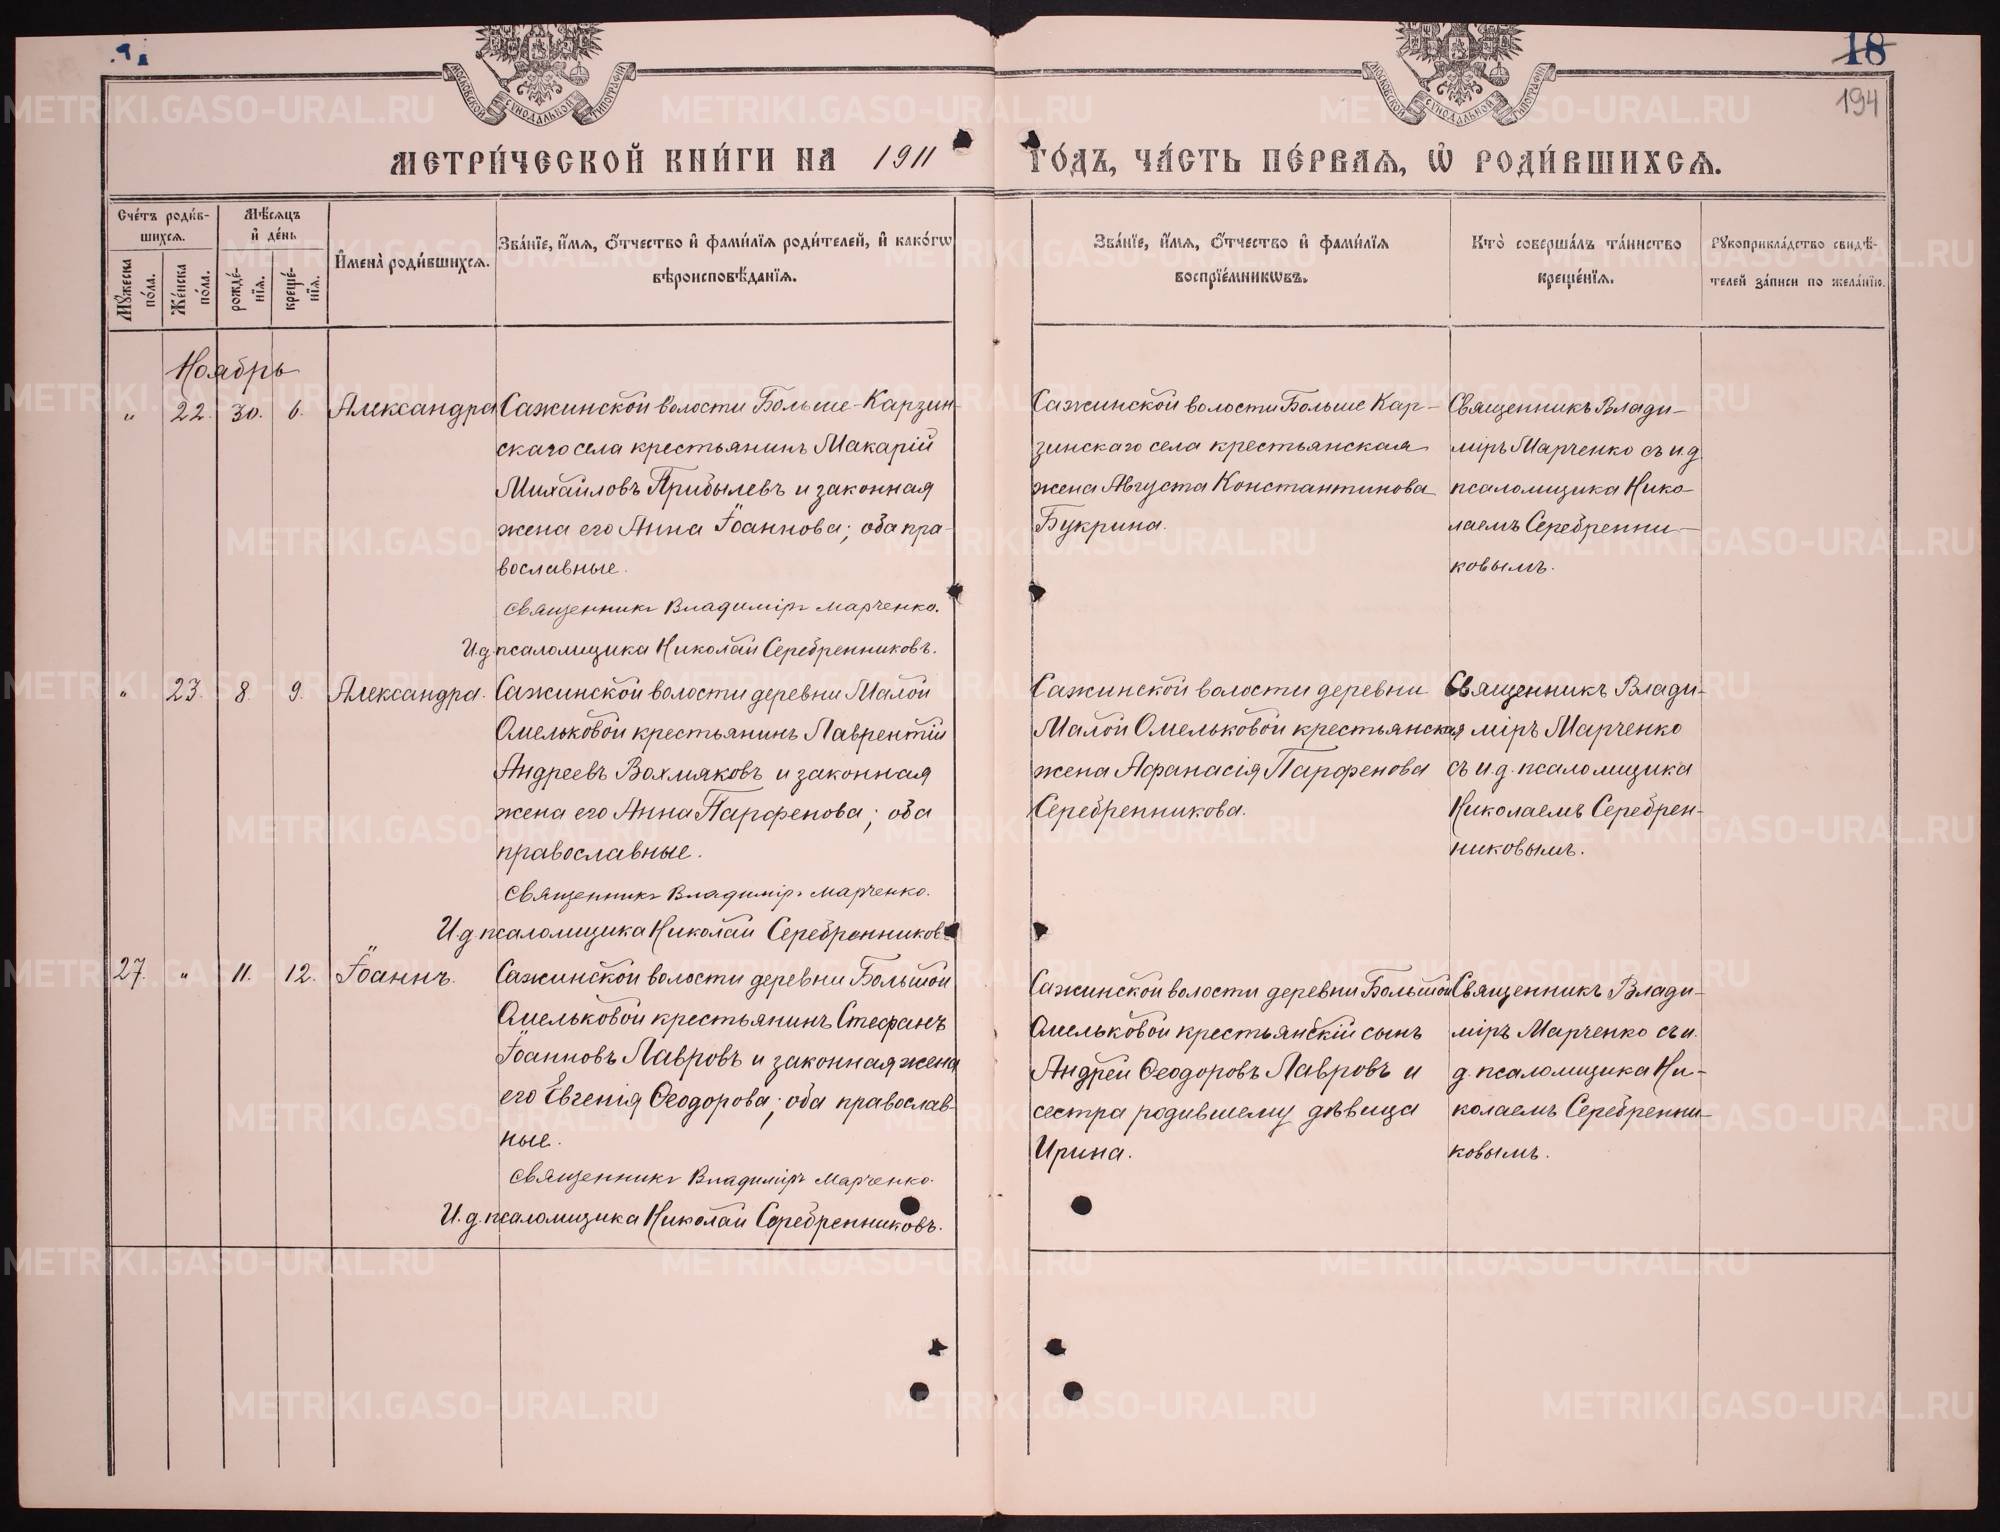 18
194
МОСКОВСКОЙ СѴНОДАЛЬНОЙ ТИПОГРАФІИ
МОСКОВСКОЙ СѴНОДАЛЬНОЙ ТИПОГРАФІИ
МЕТРИ́ЧЕСКОЙ КНИ́ГИ НА 1911 ГО́ДЪ, ЧА́СТЬ ПЕ́РВАѦ, Ѽ РОДИ́ВШИХСѦ.
Сче́тъ роди́в-
шихсѧ.
Мꙋ́жеска по́ла.
Же́нска по́ла.
Мѣ́сѧцъ
и҆ де́нь
рожде́-
нїѧ.
креще́-
нїѧ.
И҆мена̀ роди́вшихсѧ.
Зва́нїе, и҆́мѧ, ѻ҆́тчество и҆ фами́лїѧ роди́телей, и҆ како́гѡ
вѣроисповѣ́данїѧ.
Зва́нїе, и҆́мѧ, ѻ҆́тчество и҆ фами́лїѧ
воспрїе́мникѡвъ.
Кто̀ соверша́лъ та́инство
креще́нїѧ.
Рꙋкоприкла́дство свидѣ́-
телей за́писи по жела́нїю.
Ноябрь
„ 22. 30. 6. Александра
Сажинской волости Больше-Карзин-
скаго села крестьянинъ Макарій
Михайловъ Прибылевъ и законная
жена его Анна Іоаннова; оба пра-
вославные.
Священникъ Владиміръ Марченко.
И.д. псаломщика Николай Серебренниковъ.
Сажинской волости Больше Кар-
зинскаго села крестьянская
жена Августа Константинова
Букрина.
Священникъ Влади-
міръ Марченко съ и.д.
псаломщика Нико-
лаемъ Серебренни-
ковымъ.
„ 23. 8. 9. Александра.
Сажинской волости деревни Малой
Омельковой крестьянинъ Лаврентій
Андреевъ Вахмяковъ и законная
жена его Анна Парфенова; оба
православные.
Священникъ Владиміръ Марченко.
И.д. псаломщика Николай Серебренниковъ
Сажинской волости деревни
Малой Омельковой крестьянская
жена Афанасія Парфенова
Серебренникова.
Священникъ Влади-
міръ Марченко
съ и.д. псаломщика
Николаемъ Серебрен-
никовымъ.
27. „ 11. 12. Іоаннъ.
Сажинской волости деревни Большой
Омельковой крестьянинъ Стефанъ
Іоанновъ Лавровъ и законная жена
его Евгенія Ѳеодорова; оба православ-
ные.
Священникъ Владиміръ Марченко.
И.д. псаломщика Николай Серебренниковъ.
Сажинской волости деревни Большой
Омельковой крестьянскій сынъ
Андрей Ѳеодоровъ Лавровъ и
сестра родившему дѣвица
Ирина.
Священникъ Влади-
міръ Марченко съ и.
д. псаломщика Ни-
колаемъ Серебренни-
ковымъ.
METRIKI.GASO-URAL.RU